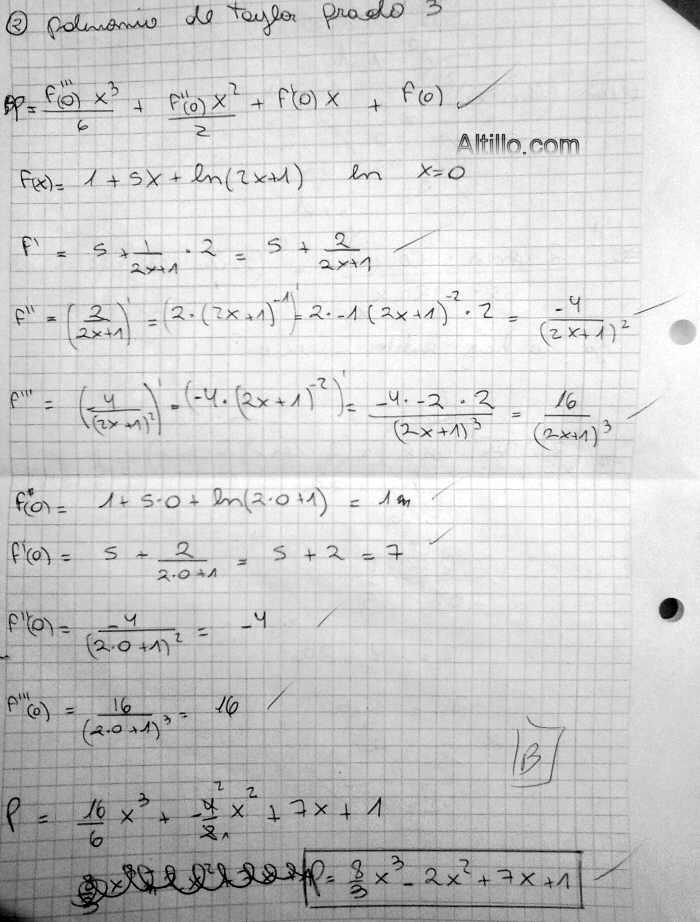 ② Polinomio de Taylor grado 3
P = f'''(0) x³/6 + f''(0) x²/2 + f'(0) x + f(0)
Altillo.com
f(x) = 1 + 5x + ln(2x+1) en x=0
f' = 5 + 1/(2x+1) · 2 = 5 + 2/(2x+1)
f'' = (2/(2x+1))' = (2·(2x+1)⁻¹)' = 2·-1(2x+1)⁻²·2 = -4/(2x+1)²
f''' = (-4/(2x+1)²)' = (-4·(2x+1)⁻²)' = -4·-2·2/(2x+1)³ = 16/(2x+1)³
f(0) = 1+5·0+ln(2·0+1) = 1
f'(0) = 5 + 2/(2·0+1) = 5+2 = 7
f''(0) = -4/(2·0+1)² = -4
f'''(0) = 16/(2·0+1)³ = 16
B
P = 16/6 x³ + -4/2 x² + 7x + 1
P = 8/3 x³ - 2x² + 7x + 1